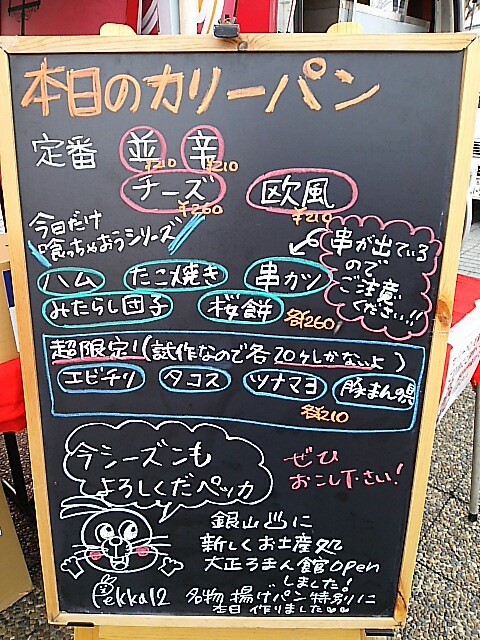 本日のカリーパン
定番 並 辛
¥210 ¥210
チーズ 欧風
¥260 ¥210
今日だけ
喰っちゃおうシリーズ
串が出ている
ので
ご注意
ください!!
ハム たこ焼き 串カツ
みたらし団子 桜餅 各¥260
超限定!(試作なので各20ヶしかないよ)
エビチリ タコス ツナマヨ 豚まんの具
各¥210
今シーズンも
よろしくだペッカ
ぜひ
おこし下さい!
銀山に
新しくお土産処
大正ろまん館Open
しました!
名物 揚げパン特別に
本日作りました♡♡
Pekka12